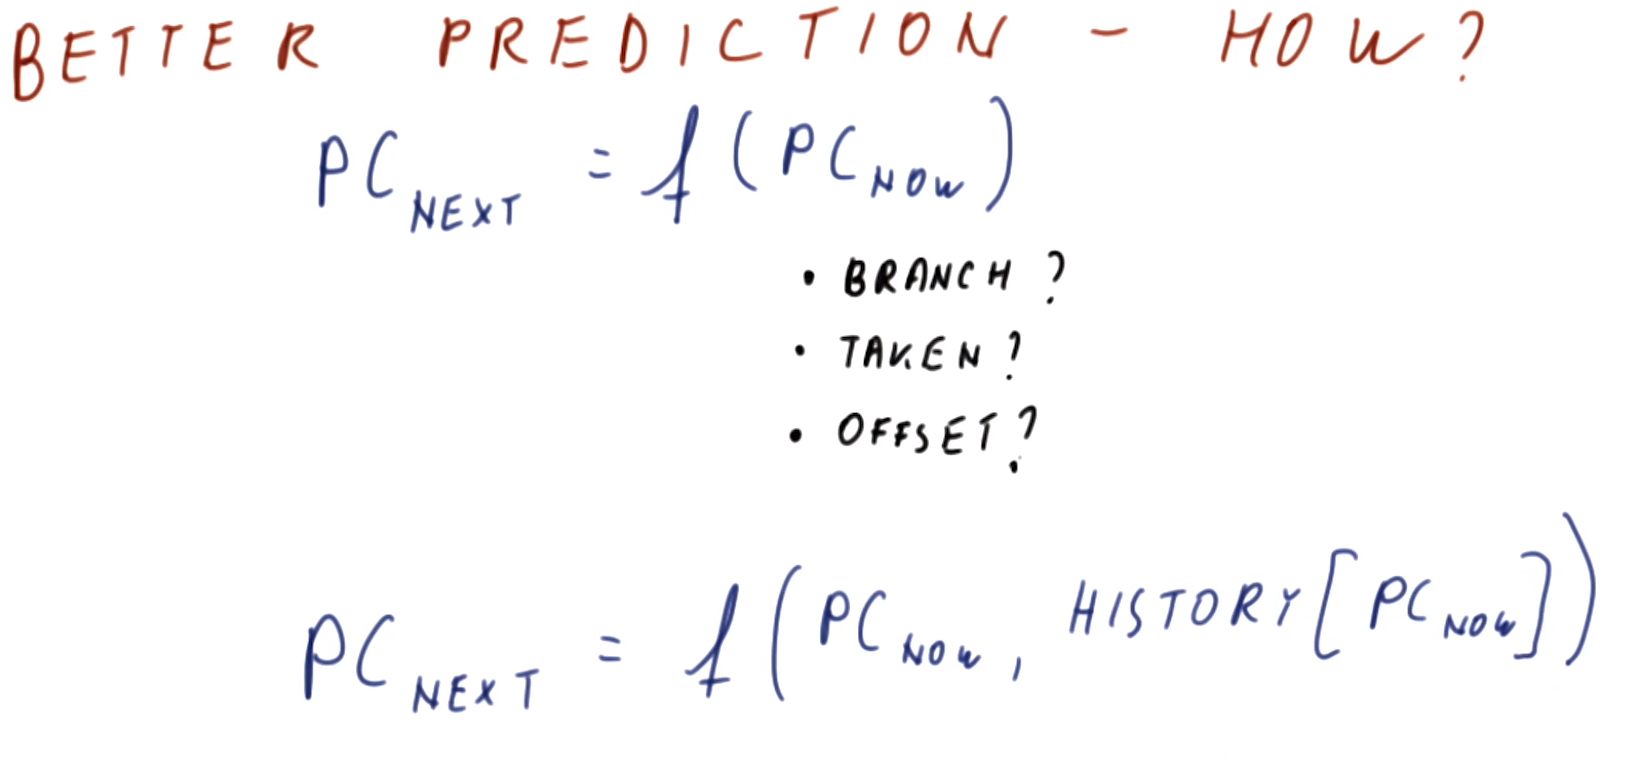 BETTER PREDICTION - HOW?
PC NEXT = f(PC NOW)
• BRANCH?
• TAKEN?
• OFFSET?
PC NEXT = f(PC NOW, HISTORY[PC NOW])